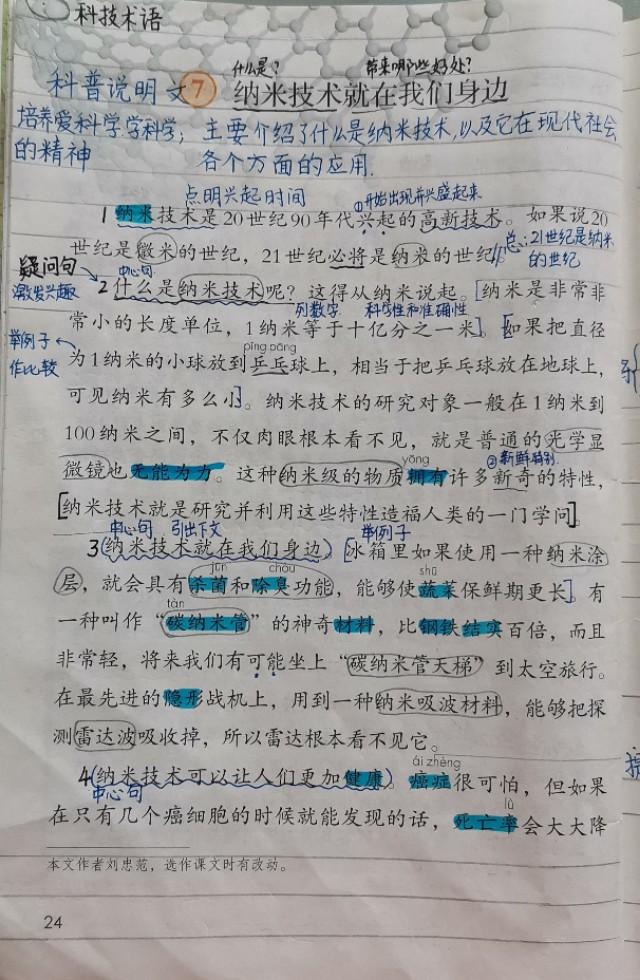 科技术语
什么是？ 带来哪些好处？
科普说明文 7 纳米技术就在我们身边
培养爱科学学科学， 主要介绍了什么是纳米技术，以及它在现代社会
的精神 各个方面的应用.
点明兴起时间 ①开始出现并兴盛起来
1纳米技术是20世纪90年代兴起的高新技术。如果说20
世纪是微米的世纪，21世纪必将是纳米的世纪。
总：21世纪是纳米
的世纪
疑问句
激发兴趣
中心句
2什么是纳米技术呢？这得从纳米说起。[纳米是非常非
列数字 科学性和准确性
常小的长度单位，1纳米等于十亿分之一米]。[如果把直径
举例子
作比较
pīng pāng
为1纳米的小球放到乒乓球上，相当于把乒乓球放在地球上，
可见纳米有多么小]。纳米技术的研究对象一般在1纳米到
100纳米之间，不仅肉眼根本看不见，就是普通的光学显
yōng ②新鲜特别.
微镜也无能为力。这种纳米级的物质拥有许多新奇的特性，
[纳米技术就是研究并利用这些特性造福人类的一门学问]。
中心句 引出下文 举例子
3(纳米技术就在我们身边)[冰箱里如果使用一种纳米涂
jūn chòu shū
层，就会具有杀菌和除臭功能，能够使蔬菜保鲜期更长]。有
tàn
一种叫作“碳纳米管”的神奇材料，比钢铁结实百倍，而且
非常轻，将来我们有可能坐上“碳纳米管天梯”到太空旅行。
在最先进的隐形战机上，用到一种纳米吸波材料，能够把探
测雷达波吸收掉，所以雷达根本看不见它。
ái zhèng
4(纳米技术可以让人们更加健康)。癌症很可怕，但如果
中心句 lǜ
在只有几个癌细胞的时候就能发现的话，死亡率会大大降
本文作者刘忠范，选作课文时有改动。
24